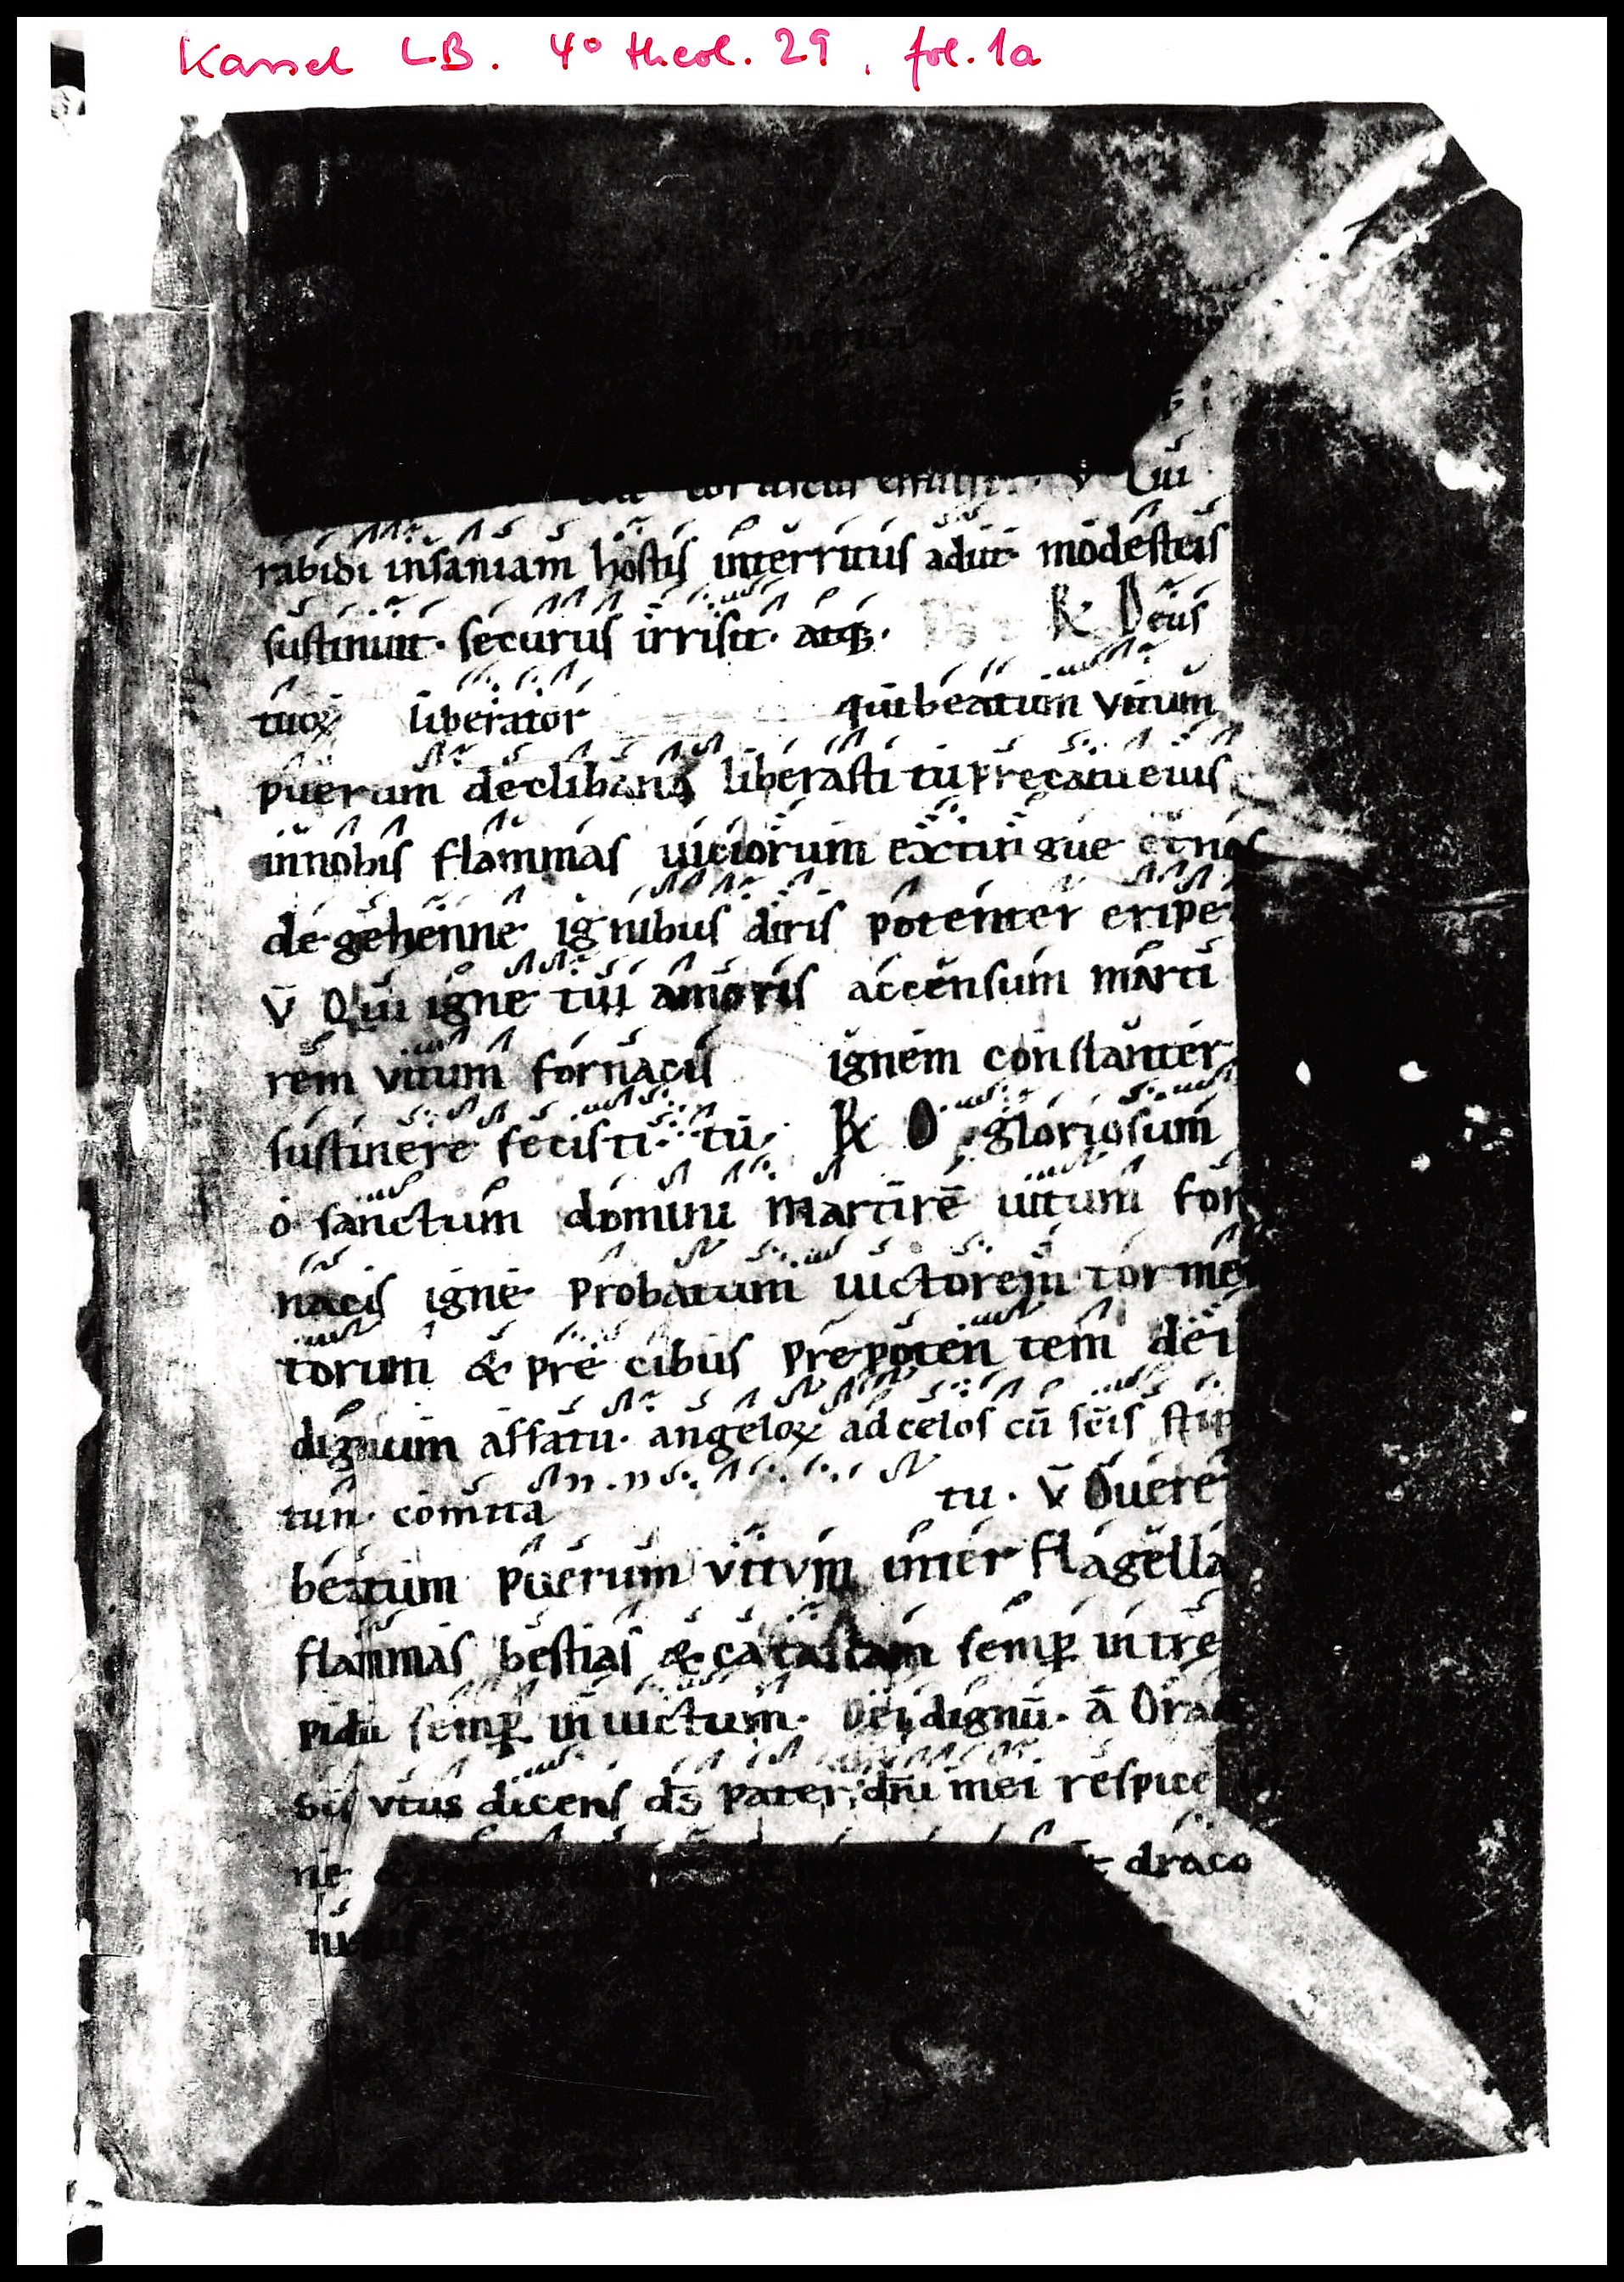 Kassel LB. 4° theol. 29, fol. 1a
V Qui
rabidi insaniam hostis interritus adiit modesteis
sustinuit. securus irrisit. atq;. R Deus
tuoꝝ liberator qui beatum vitum
puerum de clibano liberasti tu precatu eius
in nobis flammas uiciorum extingue et nos
de gehenne ignibus diris potenter eripe
V̄ Qui igne tui amoris accensum marti
rem vitum fornacis ignem constanter
sustinere fecisti. tu. R O gloriosum
o sanctum domini martirē uitum for
nacis igne probatum uictorem tormen
torum & pre cibus prepoten tem dei
dignum affatu. angeloꝝ ad celos cū scīs stip
tun. comita tu. V̄ O uere
beatum puerum vitvm inter flagella
flammas bestias & catastam semꝑ intre
pidū semꝑ in uictum. Dei dignū. ā Ora
scs vitus dicens ds̄ pater dn̄i mei respice
ne draco